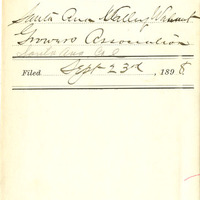 Santa Ana Valley Walnut
Growers Association
Santa Ana
Filed Sept 23rd, 1898